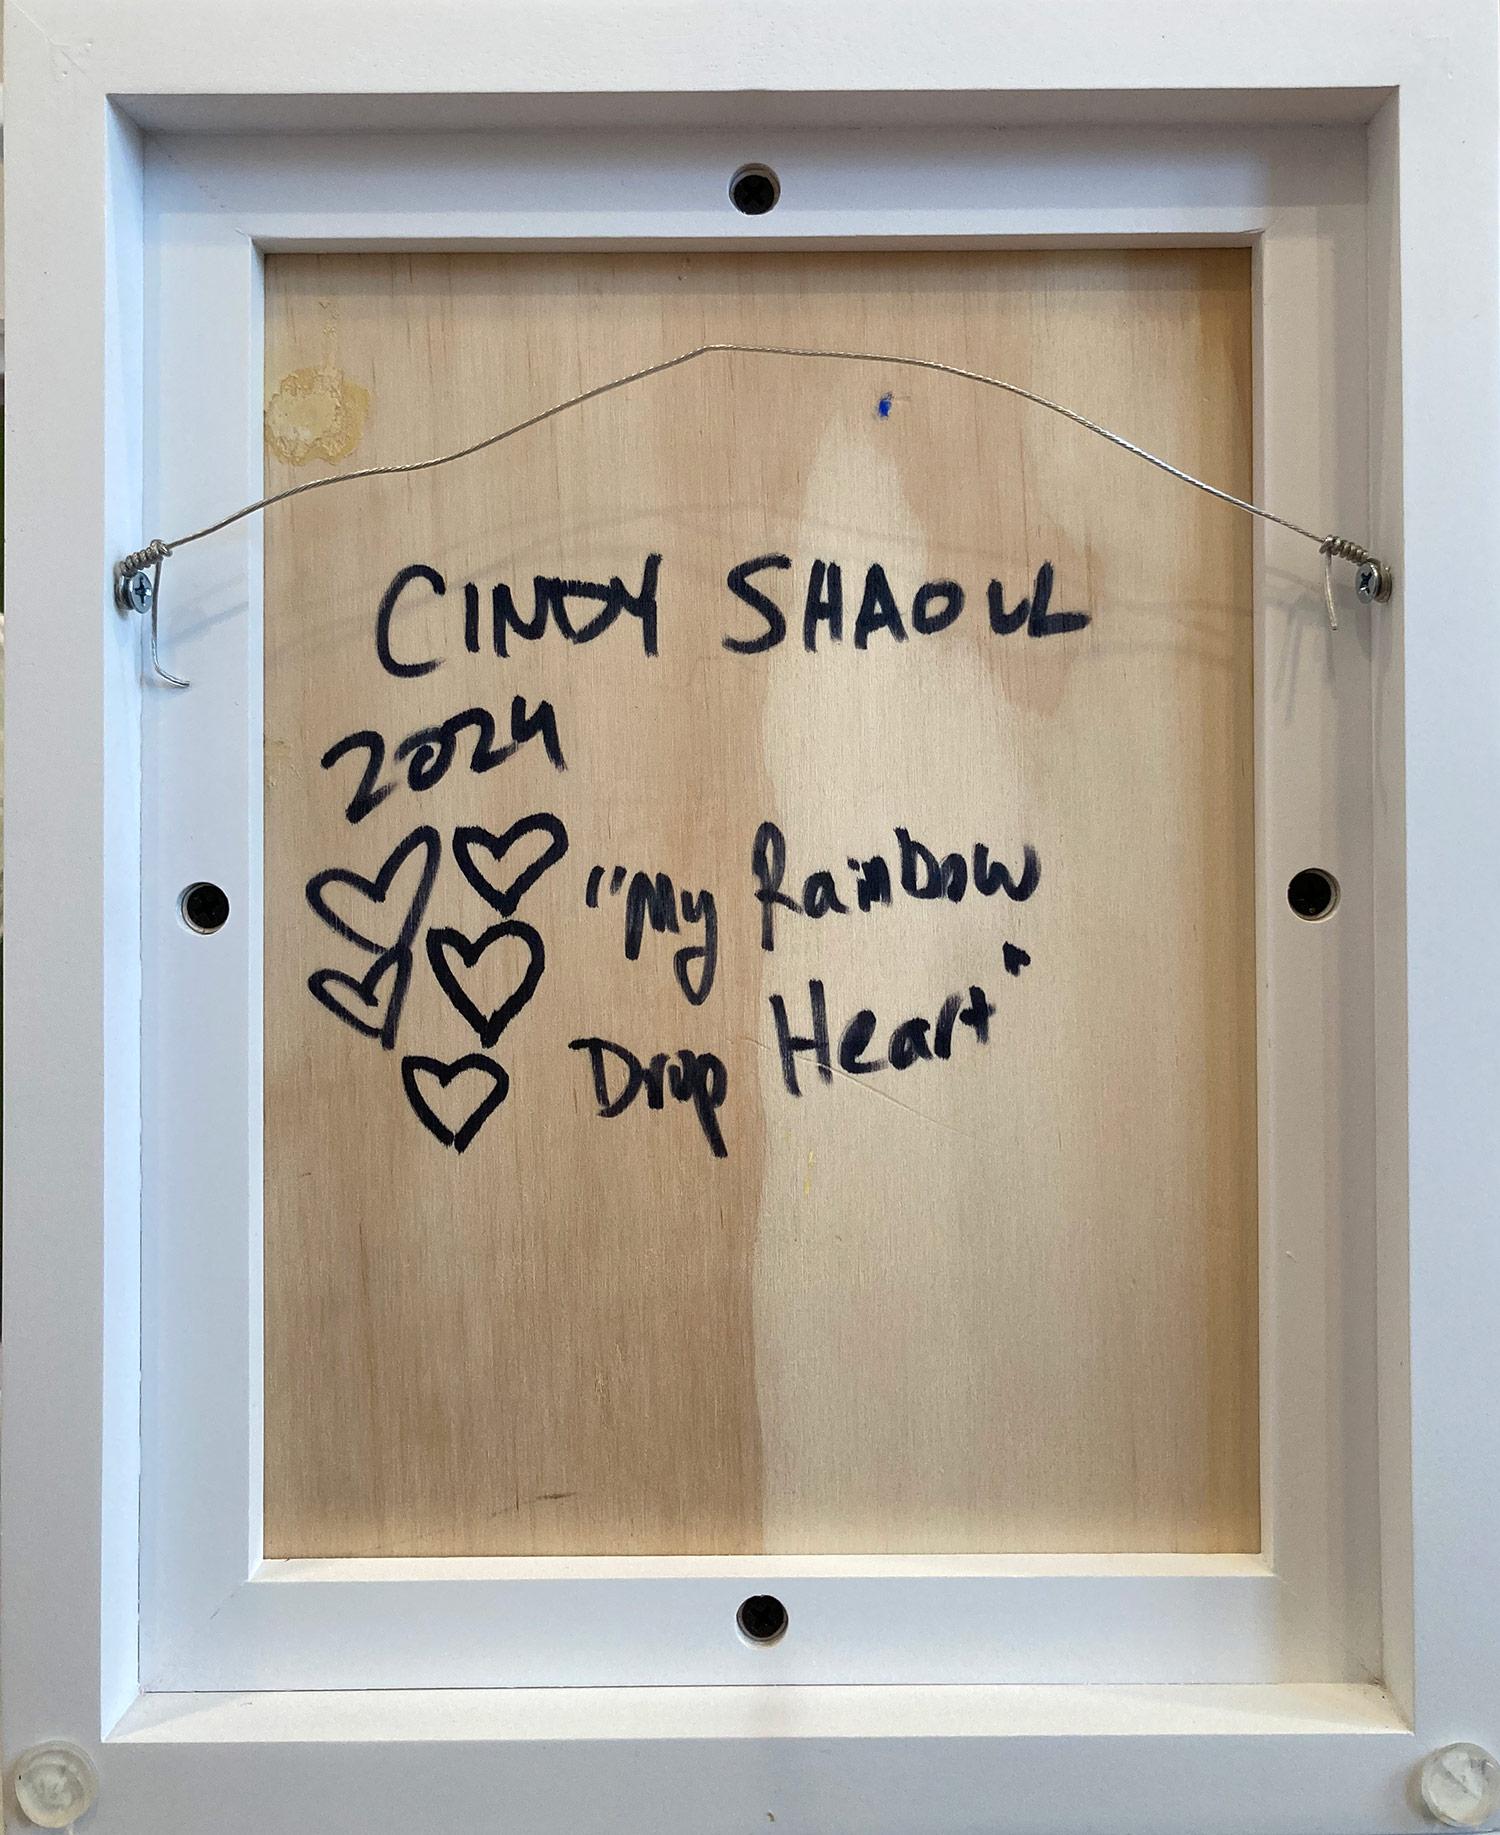 CINDY SHAOUL
2024
"My Rainbow
Drop Heart"